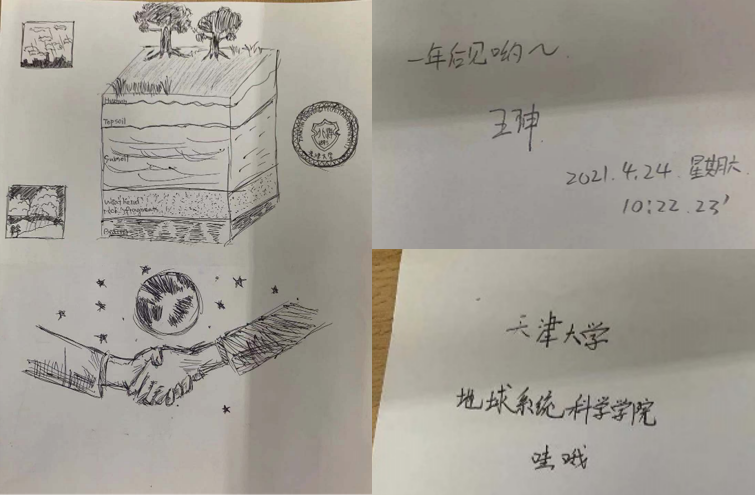 Humus
Topsoil
Subsoil
Weathered
rock fragments
Bedrock
天津大学
一年后见哟~
王珅
2021.4.24 星期六
10:22.23'
天津大学
地球系统科学学院
哇哦